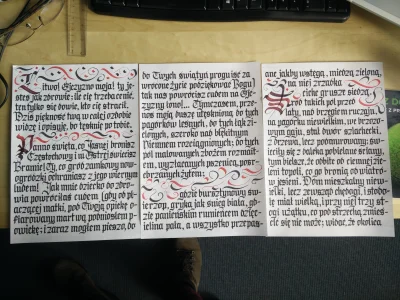 Litwo! Ojczyzno moja! ty je-
steś jak zdrowie; ile cię trzeba cenić,
ten tylko się dowie, kto cię stracił.
Dziś piękność twą w całej ozdobie
widzę i opisuję, bo tęsknię po tobie.
Panno święta, co Jasnej bronisz
Częstochowy i w Ostrej świecisz
Bramie! Ty, co gród zamkowy now-
ogródzki ochraniasz z jego wiernym
ludem! Jak mnie dziecko do zdro-
wia powróciłaś cudem (gdy od pł-
aczącej matki, pod Twoją opiekę o-
fiarowany martwą podniosłem p-
owiekę; i zaraz mogłem pieszo, do
do Twych świątyń progu iść za
wrócone życie podziękować Bogu)
tak nas powrócisz cudem na Oj-
czyzny łono!... Tymczasem, przen-
oś moją duszę utęsknioną do tych
pagórków leśnych, do tych łąk zi-
elonych, szeroko nad błękitnym
Niemnem rozciągnionych; do tych
pól malowanych zbożem rozmait-
em, wyzłacanych pszenicą, posr-
ebrzanych żytem;
gdzie bursztynowy św-
ierzop, gryka jak śnieg biała, gd-
zie panieńskim rumieńcem dzięc-
ielina pała, a wszystko przepas-
ane jakby wstęgą, miedzą zieloną,
na niej zrzadka
ciche grusze siedzą.
Śród takich pól przed
laty, nad brzegiem ruczaju,
na pagórku niewielkim, we brzozo-
wym gaju, stał dwór szlachecki,
z drzewa, lecz podmurowany; świ-
eciły się z daleka pobielane ściany,
tym bielsze, że odbite od ciemnej ziel-
eni topoli, co go bronią od wiatró-
w jesieni. Dóm mieszkalny niew-
ielki, lecz zewsząd chędogi, i stodo-
łę miał wielką, i przy niej trzy st-
ogi użątku, co pod strzechą zmieś-
cić się nie może; widać, że okolica